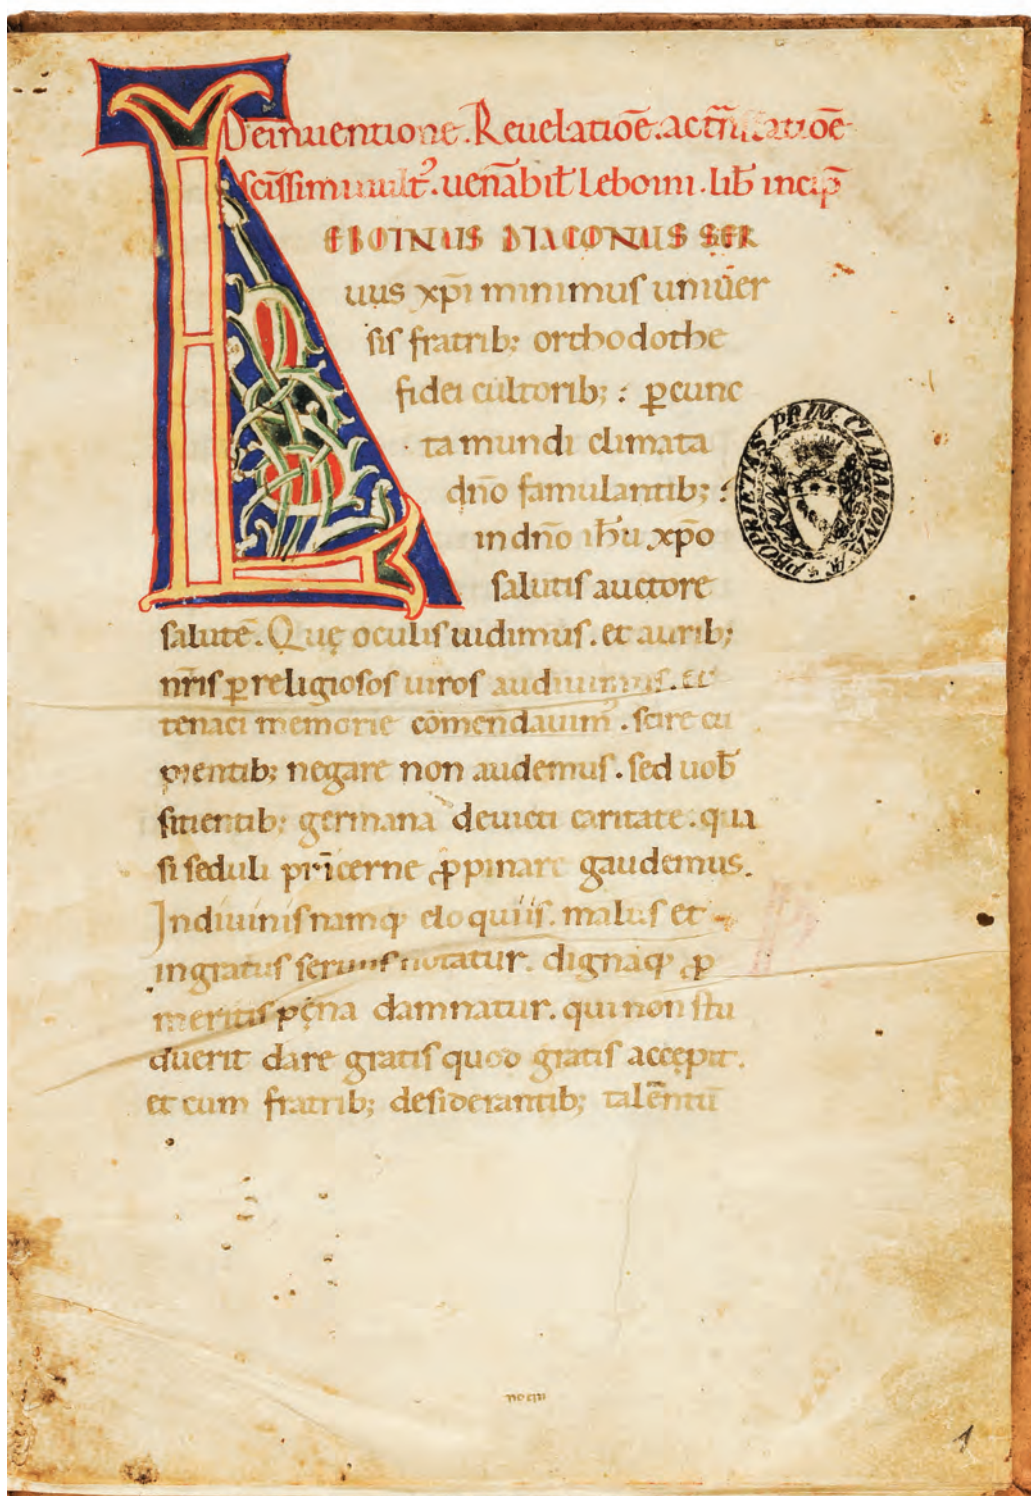 De inuentione. Reuelatiōe. ac trāſlatiōe
ſcīſſimi uult᷒. uen̄abil̄ Leboini. lib̄ incip̄
LEBOINUS DIACONUS SER
uus xp̄i minimus uniūer
ſiſ fratrib; orthodothe
fidei cultorib; : ꝑ cunc
ta mundi climata
dn̄o famulantib; :
in dn̄o ih̄u xp̄o
ſalutiſ auctore
ſalutē. Quę oculiſ uidimuſ. et aurib;
nr̄iſ ꝑ religioſoſ uiroſ audiuimuſ. et
tenaci memorie cōmendauim᷒. ſcire cu
pientib; negare non audemuſ. ſed uob̄
ſitientib; germana deuicti caritate. qua
ſi ſeduli prīcerne ꝓpinare gaudemus.
In diuiniſ namq; eloquiis. maluſ et
ingratuſ ſeruuſ notatur. dignaq; ꝓ
meritiſ pęna damnatur. qui non ſtu
duerit dare gratiſ quod gratiſ accępit.
et cum fratrib; deſiderantib; talēntū
PROPRIETAS PRIM. CLARAVOVAE
1